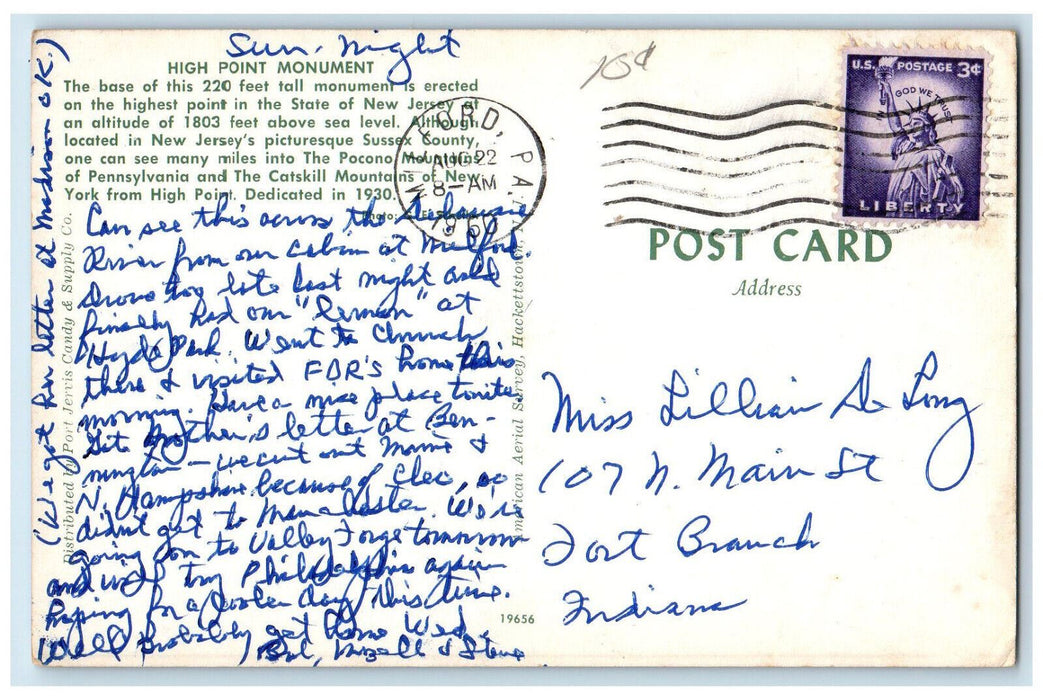 Sun. Night
HIGH POINT MONUMENT
The base of this 220 feet tall monument is erected
on the highest point in the State of New Jersey at
an altitude of 1803 feet above sea level. Although
located in New Jersey's picturesque Sussex County,
one can see many miles into The Pocono Mountains
of Pennsylvania and The Catskill Mountains of New
York from High Point. Dedicated in 1930.
Photo:
Can see this across the Delaware
River from our cabin at Milford.
Drove too late last night and
finally had our "lemon" at
Hyde Park. Went to Church
there & visited FDR's home this
morning. Have a nice place tonite.
Got Mother's letter at Ben-
nington - we cut out Maine &
N. Hampshire because of Cleo, so
didn't get to Manchester. We're
going on to Valley Forge tomorrow
and will try Philadelphia again
hoping for a cooler day this time.
Will probably get home Wed.
& Steve
(We got her letter at Madison OK.)
Distributed by Port Jervis Candy & Supply Co.
American Aerial Survey, Hackettstown, N.J.
19656
MILFORD, PA.
AUG 22
8-AM
1960
15¢
U.S. POSTAGE 3¢
IN GOD WE TRUST
LIBERTY
POST CARD
Address
Miss Lillian De Long
107 N. Main St
Fort Branch
Indiana